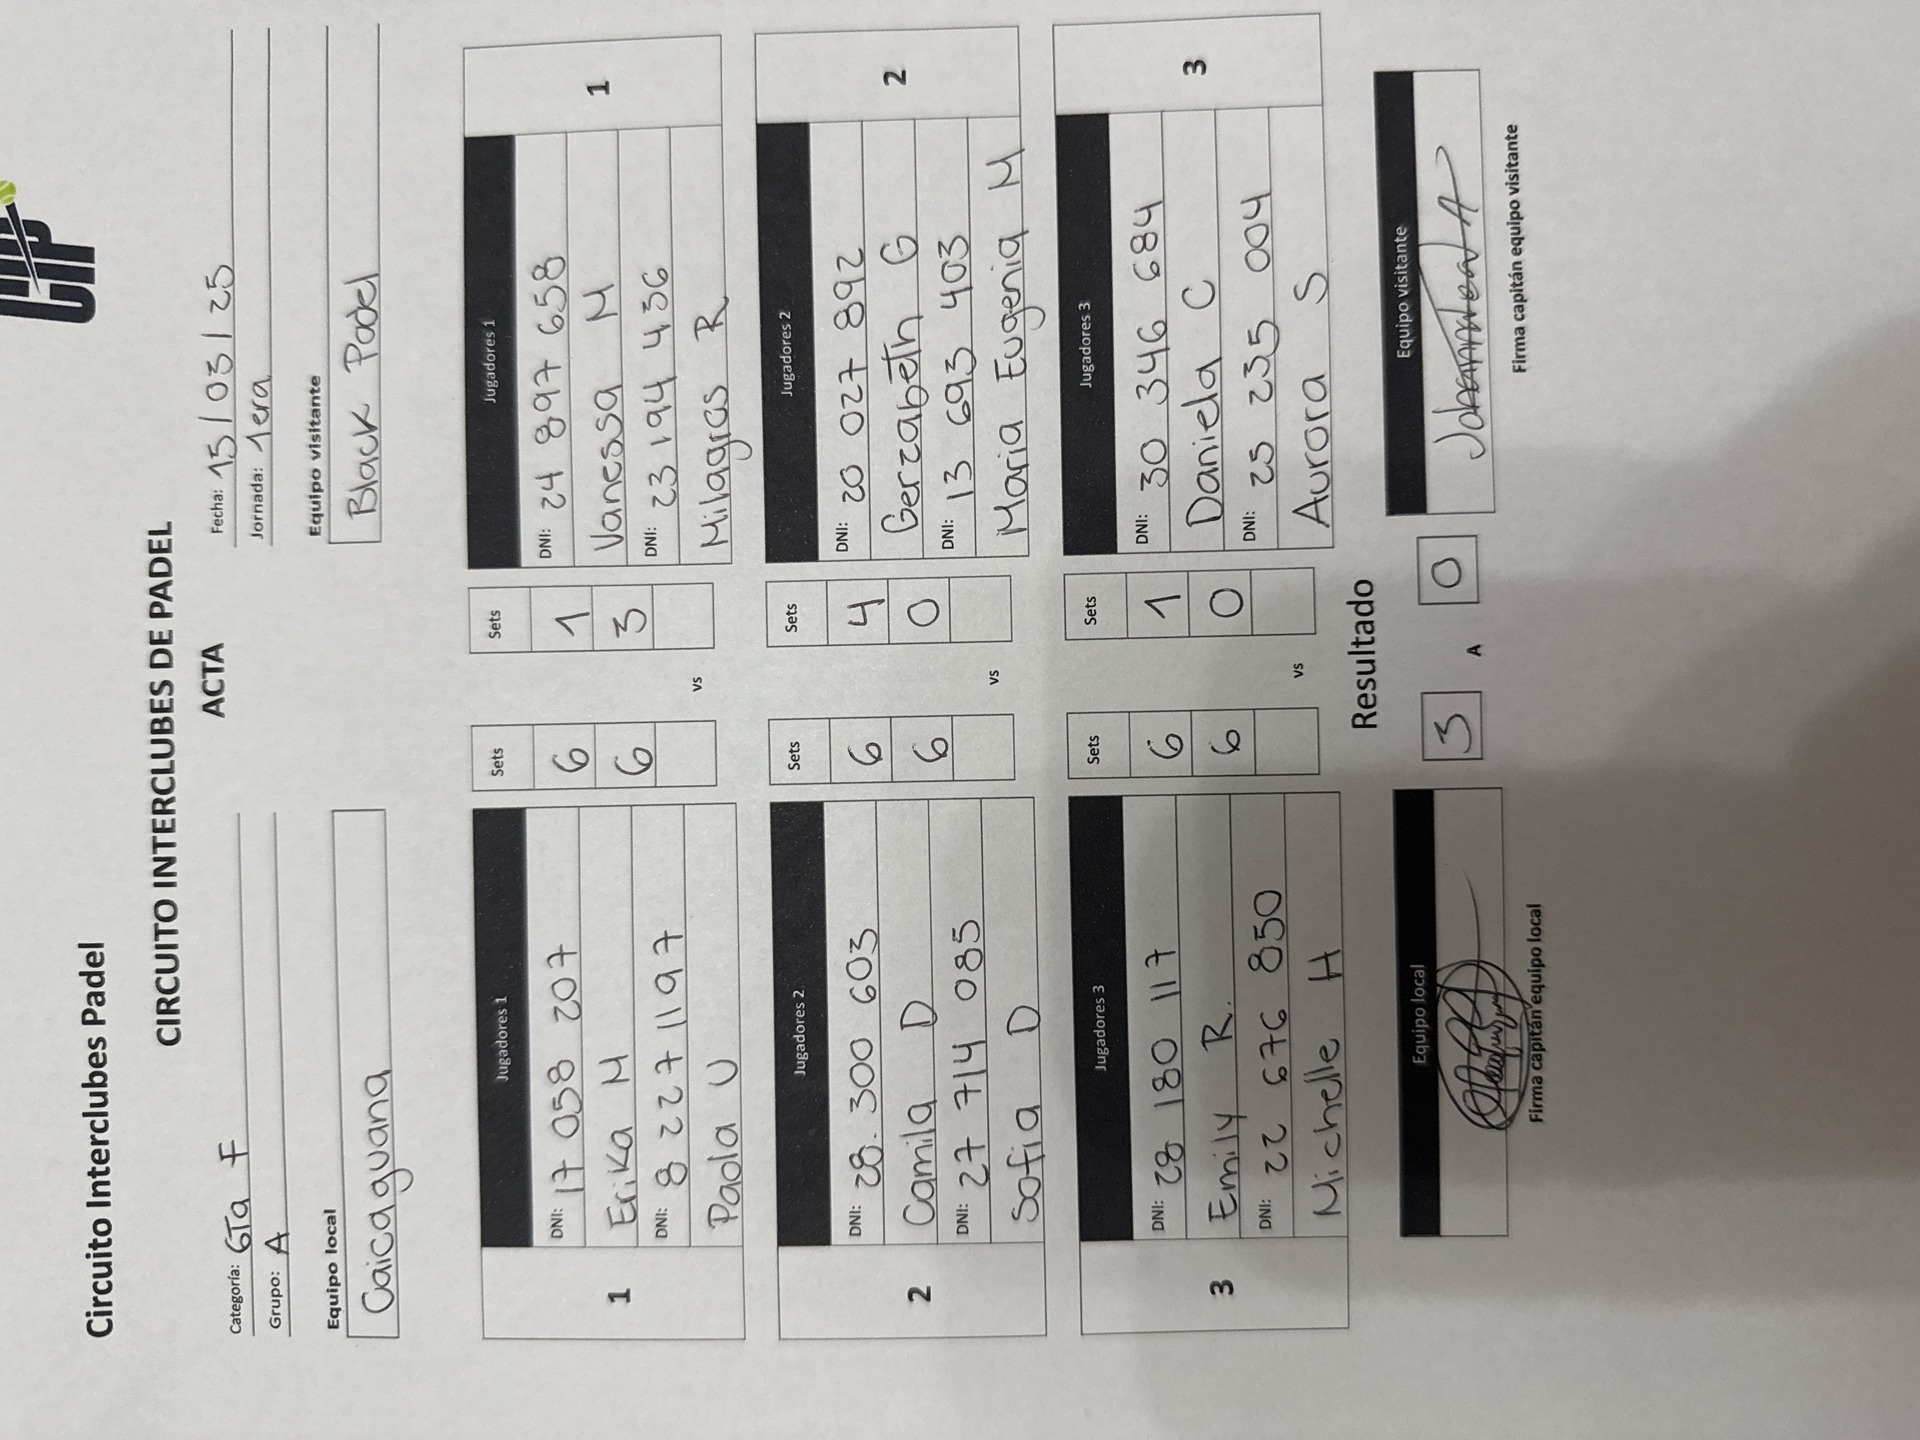 CIP
Circuito Interclubes Padel
CIRCUITO INTERCLUBES DE PADEL
ACTA
Categoría: 6Ta F
Fecha: 15/03/25
Grupo: A
Jornada: 1era
Equipo local
Equipo visitante
Caicaguana
Black Padel
1
Jugadores 1
DNI: 17 058 207
Erika M
DNI: 8 227 1197
Paola U
Sets
6
6
vs
Sets
1
3
Jugadores 1
DNI: 24 897 658
Vanessa M
DNI: 23 194 436
Milagros R
1
2
Jugadores 2
DNI: 28.300 603
Camila D
DNI: 27 714 085
Sofia D
Sets
6
6
vs
Sets
4
0
Jugadores 2
DNI: 20 027 892
Gerzabeth G
DNI: 13 693 403
Maria Eugenia M
2
3
Jugadores 3
DNI: 28 180 117
Emily R.
DNI: 22 676 850
Michelle H
Sets
6
6
vs
Sets
1
0
Jugadores 3
DNI: 30 346 684
Daniela C
DNI: 25 235 004
Aurora S
3
Resultado
Equipo local
3 A 0
Equipo visitante
Firma capitán equipo local
Firma capitán equipo visitante